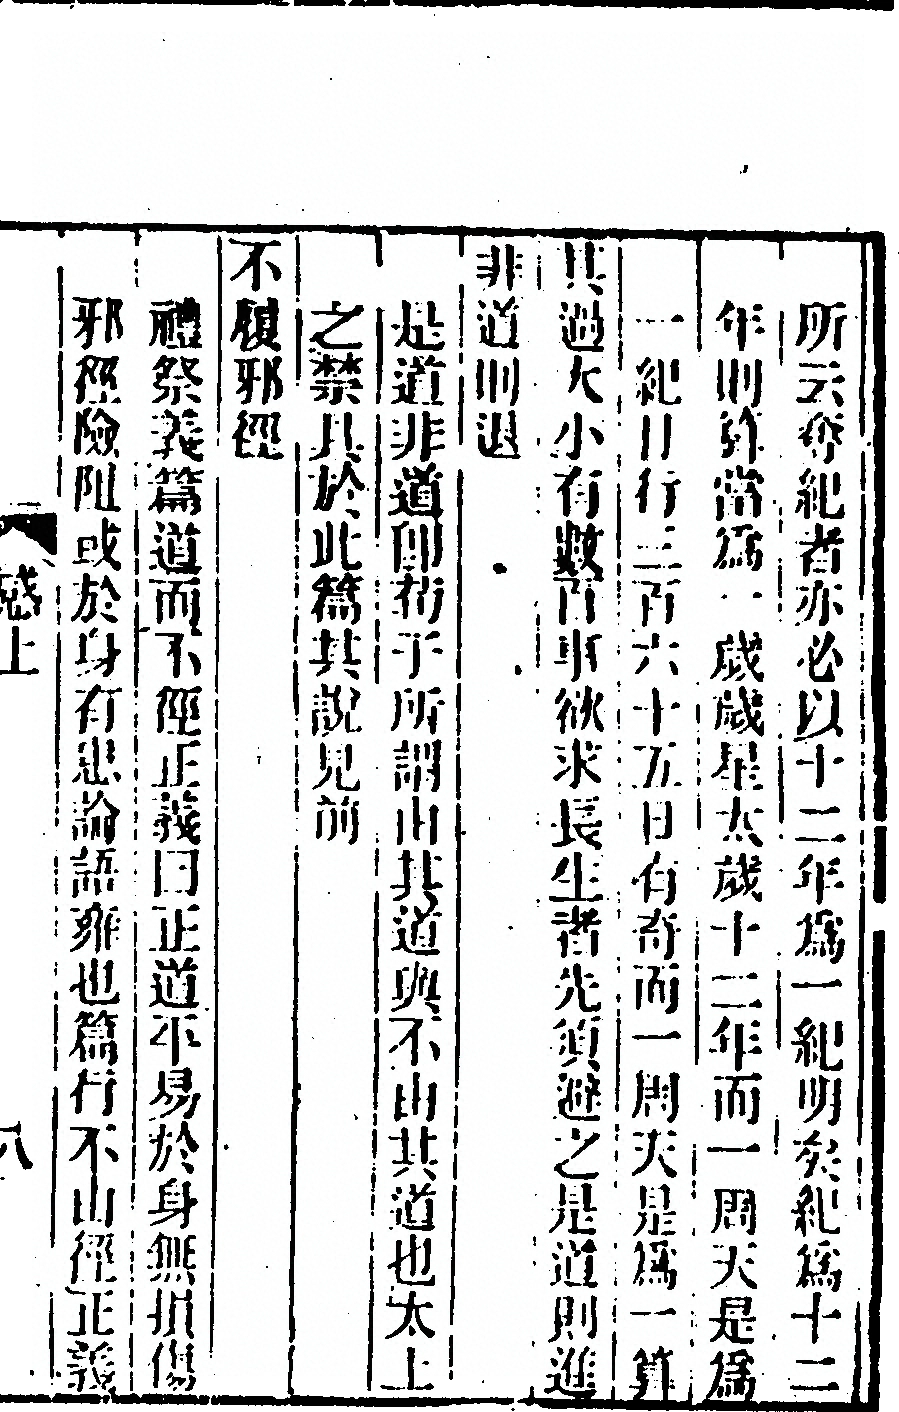 所云奪紀者亦必以十二年爲一紀明矣紀爲十二
年則算當爲一歲歲星太歲十二年而一周天是爲
一紀日行三百六十五日有奇而一周天是爲一算
其過大小有數百事欲求長生者先須避之是道則進
非道則退
是道非道卽荀子所謂由其道與不由其道也太上
之禁具於此篇其說見前
不履邪徑
禮祭義篇道而不徑正義曰正道平易於身無損傷
邪徑險阻或於身有患論語雍也篇行不由徑正義
感上
八